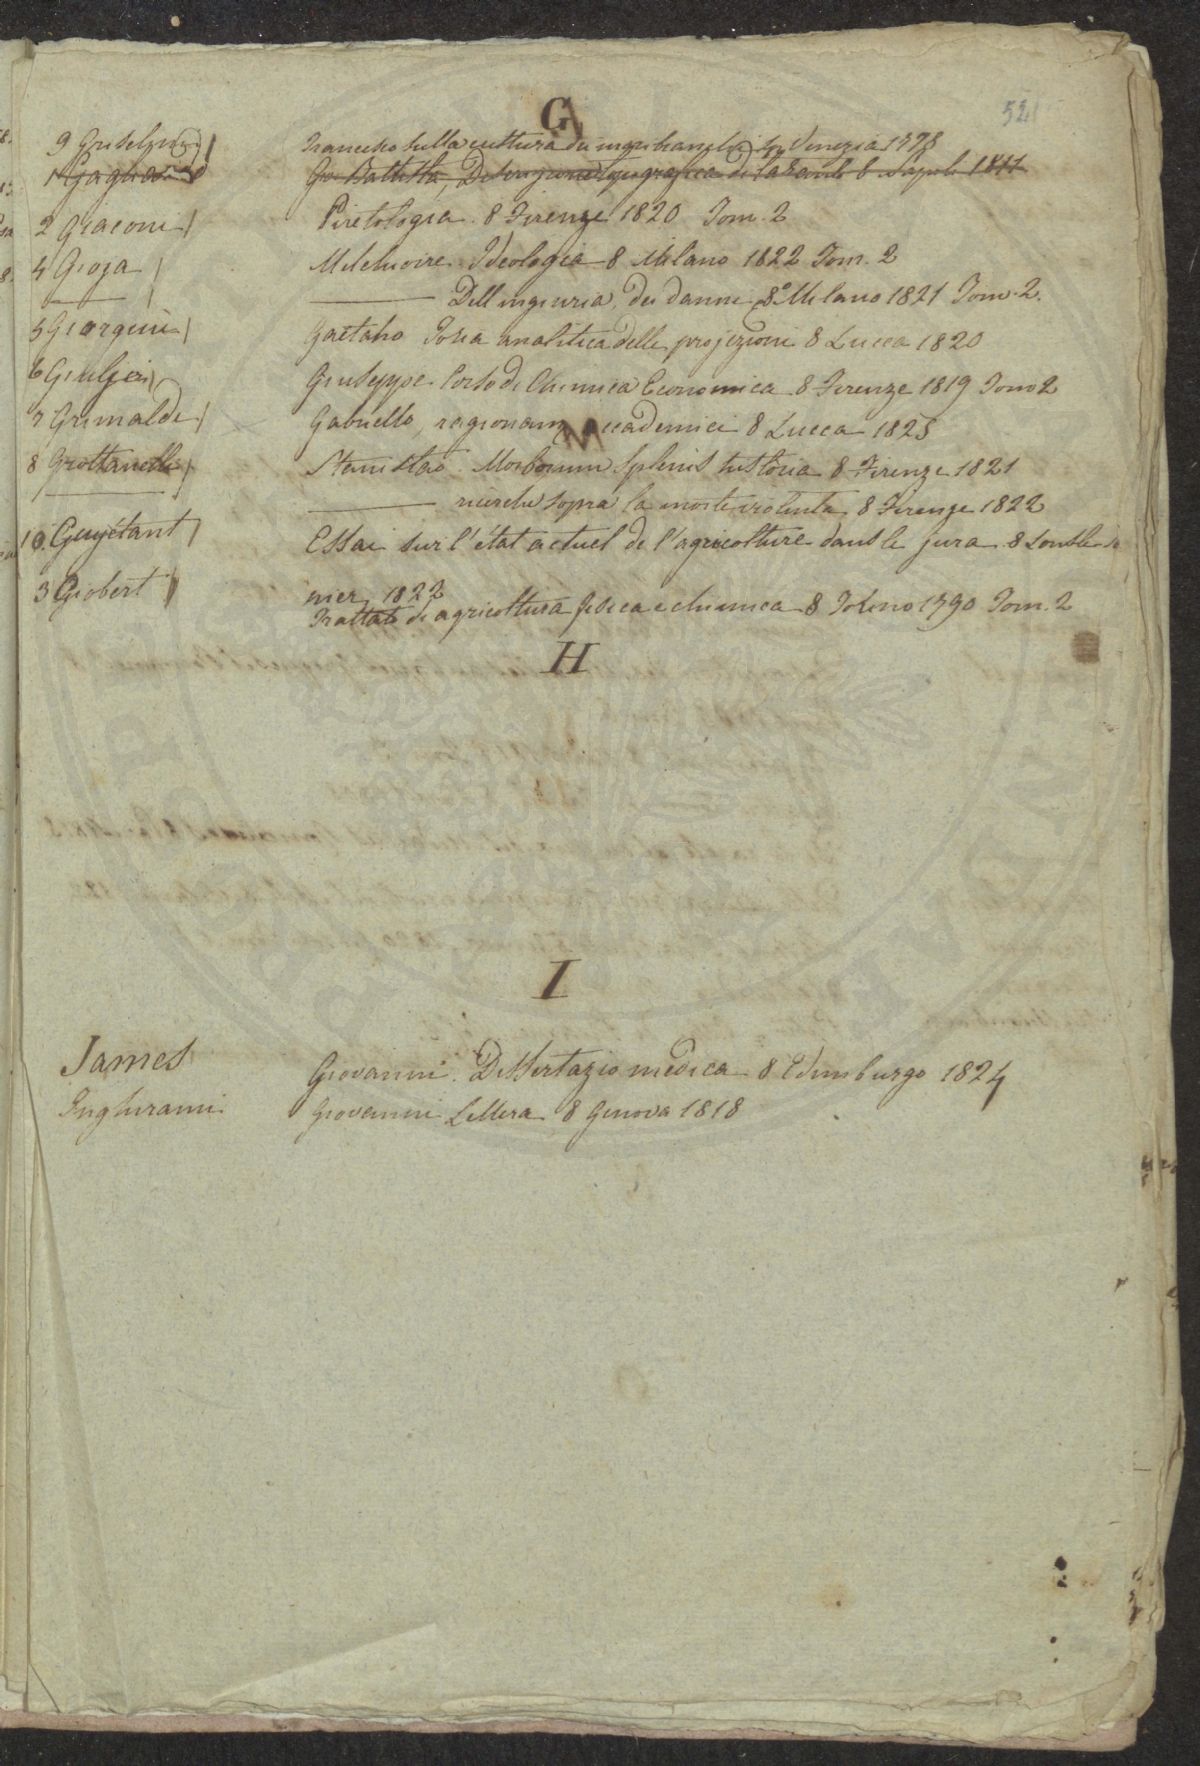 G
52
9 Griselini Francesco sulla cultura dei mori bianchi 8 Venezia 1778
1 Gagliardo Gio Battista, Descrizione topografica di Taranto 8 Napoli 1811
2 Giaconi Piretologia 8 Firenze 1820 Tom. 2
4 Gioja Melchiorre Ideologia 8 Milano 1822 Tom. 2
Dell ingiuria, dei danni 8.º Milano 1821 Tom. 2.
5 Giorgini Gaetano Toria analitica delle projezioni 8 Lucca 1820
6 Giulj Giuseppe Corso di Chimica Economica 8 Firenze 1819 Tomo 2
7 Grimaldi Gabriello, ragionam accademici 8 Lucca 1825
8 Grottanelli Stanislao Morborum Splenis historia 8 Firenze 1821
ricerche sopra la morte violenta 8 Firenze 1822
10 Guyétant Essai sur l'état actuel de l'agricolture dans le jura 8
nier 1822
3 Giobert Trattato di agricoltura fisica e chimica 8 Torino 1790 Tom. 2
H
I
James Giovanni. Dissertazio medica 8 Edimburgo 1824
Inghirami Giovanni Lettera 8 Genova 1818